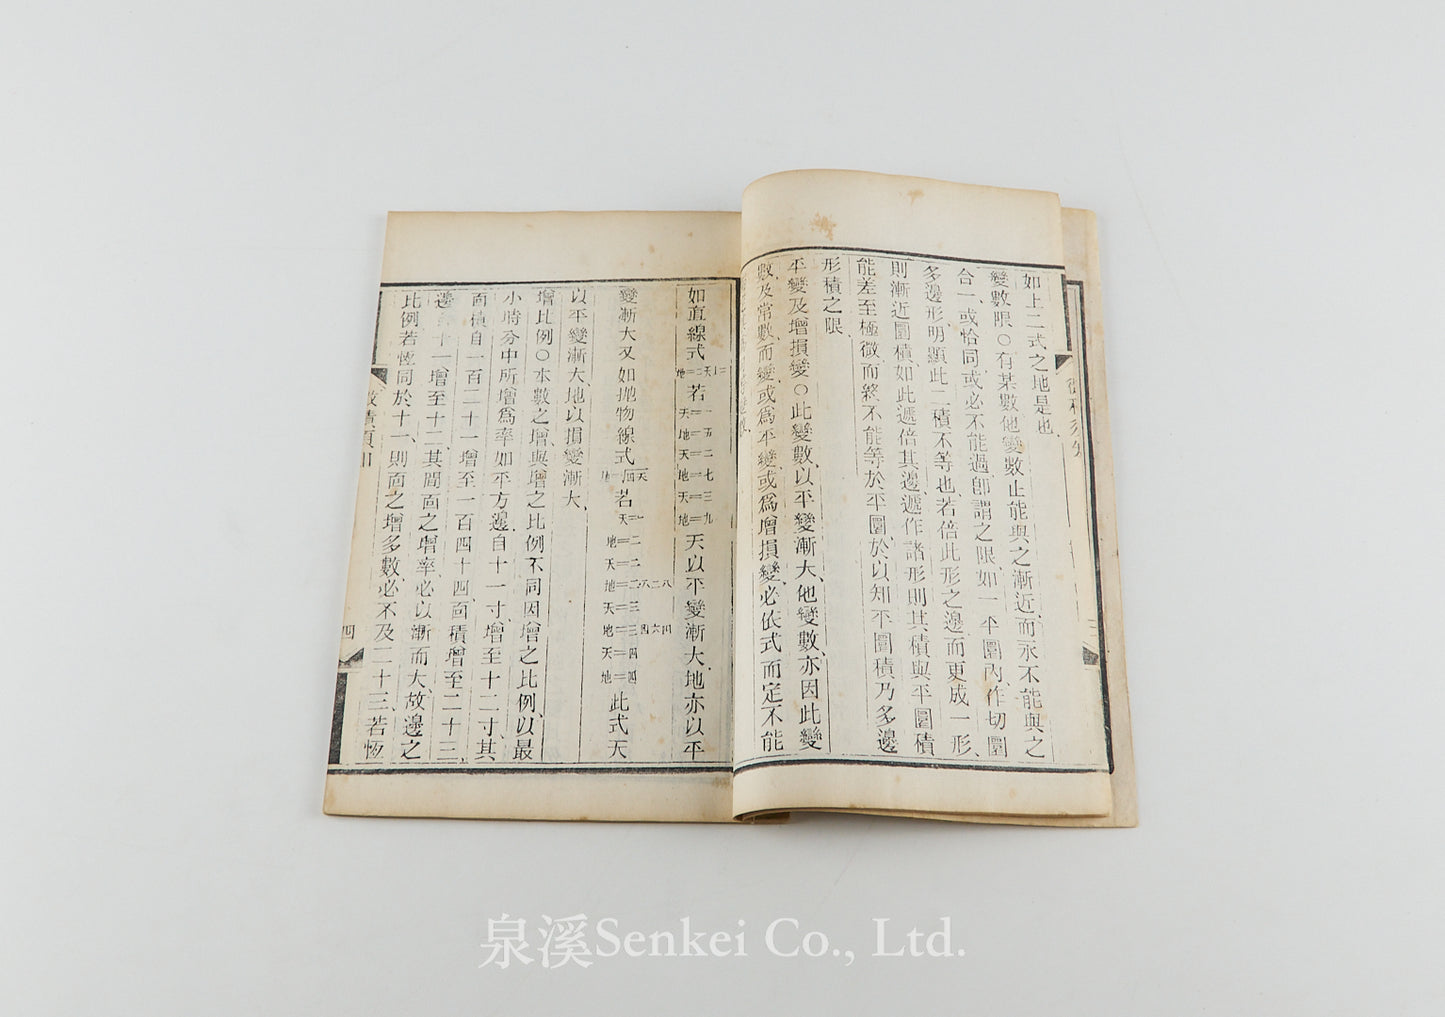 如上二式之地是也
變數限○有某數他變數止能與之漸近而永不能與之
合一、或恰同、或必不能過、卽謂之限、如一平圜內、作切圜
多邊形、明顯此二積不等也、若倍此形之邊而更成一形、
則漸近圜積、如此遞倍其邊、遞作諸形、則其積與平圜積
能差至極微、而終不能等於平圜、於以知平圜積乃多邊
形積之限
平變及增損變○此變數、以平變漸大、他變數、亦因此變
數及常數而變、或爲平變、或爲增損變、必依式而定、不能
如直線式
若
天以平變漸大、地亦以平
變漸大、又如拋物線式
若
此式天
以平變漸大、地以損變漸大、
增比例○本數之增、與增之比例不同、因增之比例、以最
小時分中所增爲率、如平方邊、自十一寸、增至十二寸、其
面積自一百二十一增至一百四十四、面積增至二十三、
十一增至十二、其間面之增率、必以漸而大、故邊之
比例若恆同於十一、則面之增多數必不及二十三、若恆
四
泉溪Senkei Co., Ltd.